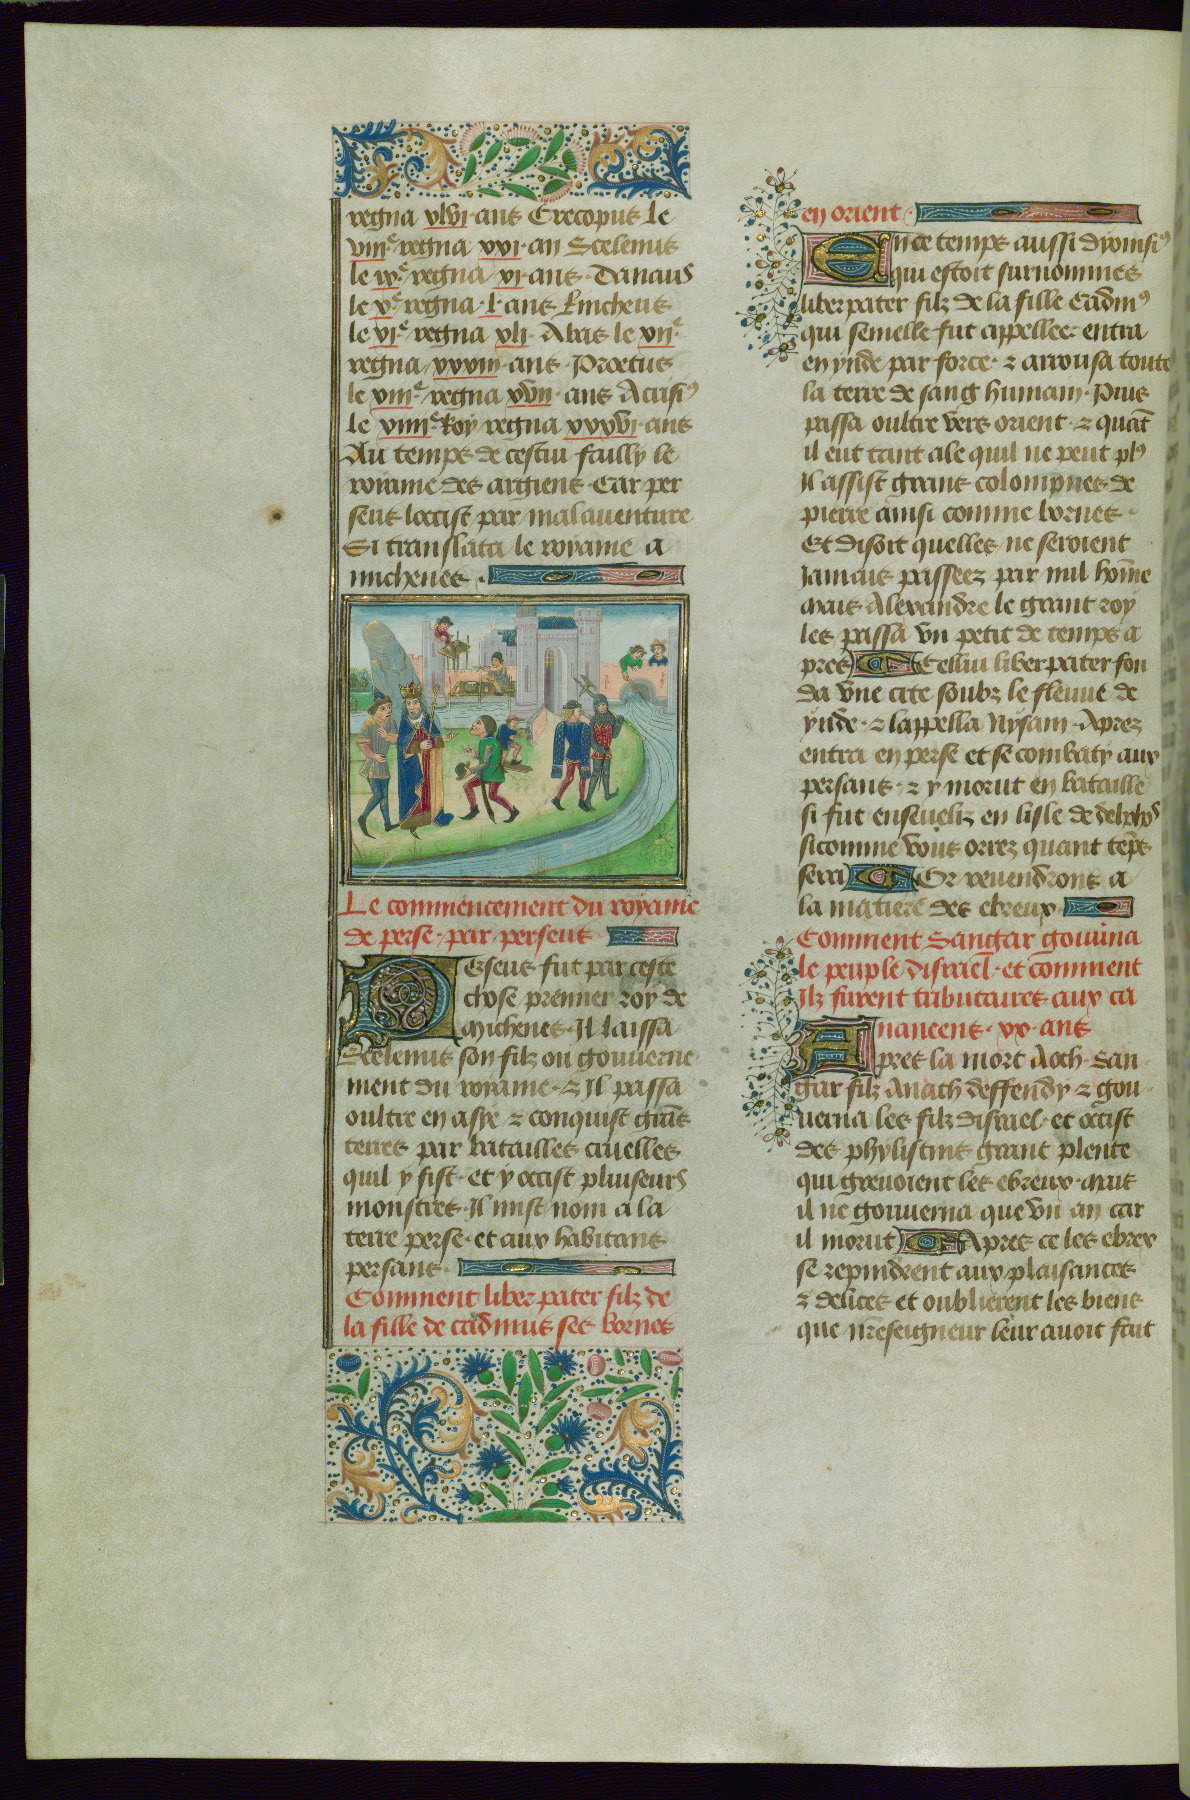 regna xlvi ans Crecopus le
viiie regna xxi an Stelenus
le ixe regna xi ans Danaus
le xe regna l ans Lincheus
le xie regna xli Abas le xiie
regna xxxiii ans Proetus
le xiiie regna xvii ans Acrisius
le xiiiie Roy regna xxxvi ans
Au temps de cestui failly le
royame des argiens Car per
seus loccist par malaventure
Si translata le royame a
michenes
Le commencement du royame
de perse par perseus
Perseus fut par ceste
chose premier roy de
Michenes Il laissa
Stelenus son filz ou gouverne
ment du royame et Il passa
oultre en asye et conquist grans
terres par batailles cruelles
quil y fist et y occist pluiseurs
monstres Il mist nom a la
terre perse et aux habitans
persans
Comment liber pater filz de
la fille de cadmus ses bornes
en orient
En ce temps aussi dyonisius
qui estoit surnommes
liber pater filz de la fille Cadmus
qui semelle fut appellee entra
en ynde par force et arrousa toute
la terre de sang humain Puis
passa oultre vers orient et quant
il eut tant ale quil ne peut plus
Il assist grans colompnes de
pierre ainsi comme bornes
Et disoit quelles ne seroient
Jamais passeez par nul homme
mais Alexandre le grant roy
les passa un petit de temps a
pres Cellui liber pater fon
da une cite soubz le fleuve de
ynde et lappella Nysam Aprez
entra en perse et se combaty aux
persans et y morut en bataille
si fut enseveliz en lisle de delphos
sicomme vous orrez quant temps
sera Or revendrons a
la matiere des ebreux
Comment Sangar gouverna
le peuple disrael et comment
Ilz furent tributaires aux ca
naneens xx ans
Apres la mort Aoth San
gar filz Anach deffendy et gou
verna les filz disrael et occist
des phylistins grant plente
qui grevoient les ebreux mais
il ne gouverna que un an car
il morut Apres ce les ebrex
se reprindrent aux plaisances
et delices et oublierent les biens
que nreseigneur leur avoit fait